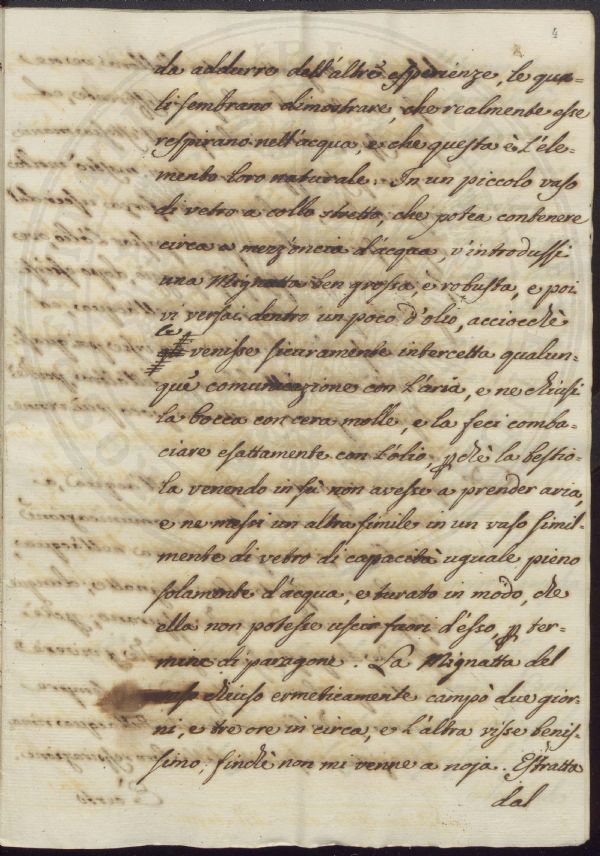 4
da addurre dell'altre esperienze, le qua=
li sembrano dimostrare, che realmente esse
respirano nell'acqua, e che questa è l'ele=
mento loro naturale. In un piccolo vaso
di vetro a collo stretto, che potea contenere
circa a mezz'oncia d'acqua, v'introdussi
una Mignatta ben grossa, e robusta, e poi
vi versai dentro un poco d'olio, acciocchè
le
venisse sicuramente intercetta qualun=
que comunicazione con l'aria, e ne chiusi
la bocca con cera molle, e la feci comba=
ciare esattamente con l'olio, pchè la bestio=
la venendo in sù non avesse a prender aria
e ne messi un altra simile in un vaso simil=
mente di vetro di capacità uguale pieno
solamente d'acqua, e turato in modo, che
ella non potesse uscir fuori d'esso, p ter=
mine di paragone. La Mignatta del
vaso chiuso ermeticamente campò due gior=
ni, e tre ore in circa, e l'altra visse benis=
simo, finchè non mi venne a noja. Estratta
dal